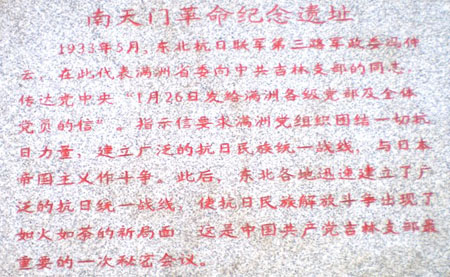 南天门革命纪念遗址
1933年5月，东北抗日联军第三路军政委冯仲
云，在此代表满洲省委向中共吉林支部的同志，
传达党中央“1月26日发给满洲各级党部及全体
党员的信”。指示信要求满洲党组织团结一切抗
日力量，建立广泛的抗日民族统一战线，与日本
帝国主义作斗争。此后，东北各地迅速建立了广
泛的抗日统一战线，使抗日民族解放斗争出现了
如火如荼的新局面，这是中国共产党吉林支部最
重要的一次秘密会议。